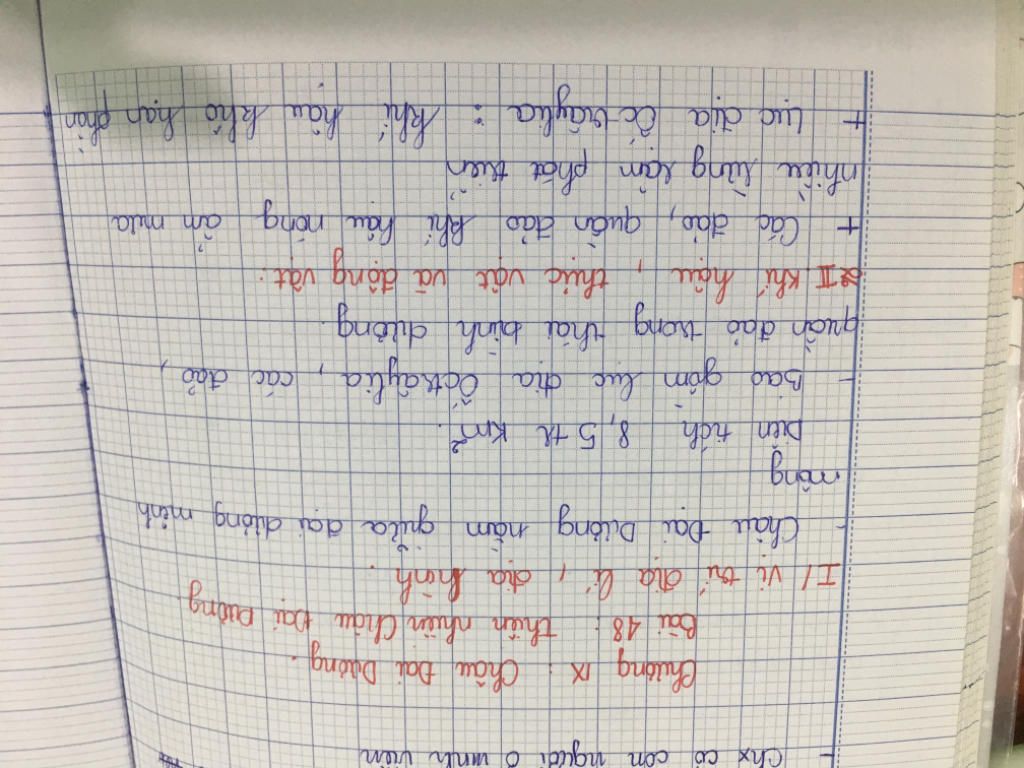 - Chx có con người ở vĩnh viễn
Chương IX : Châu Đại Dương.
Bài 48 : thiên nhiên Châu Đại Dương.
I/ Vị trí địa lí, địa hình.
- Châu Đại Dương nằm giữa đại dương mênh
mông
Diện tích 8,5 tr km².
- Bao gồm lục địa Ôxtrâylia, các đảo,
quần đảo trong thái bình dương.
II Khí hậu, thực vật và động vật:
+ Các đảo, quần đảo khí hậu nóng ẩm mưa
nhiều rừng rậm phát triển
+ Lục địa Ôxtrâylia : khí hậu khô hạn phần